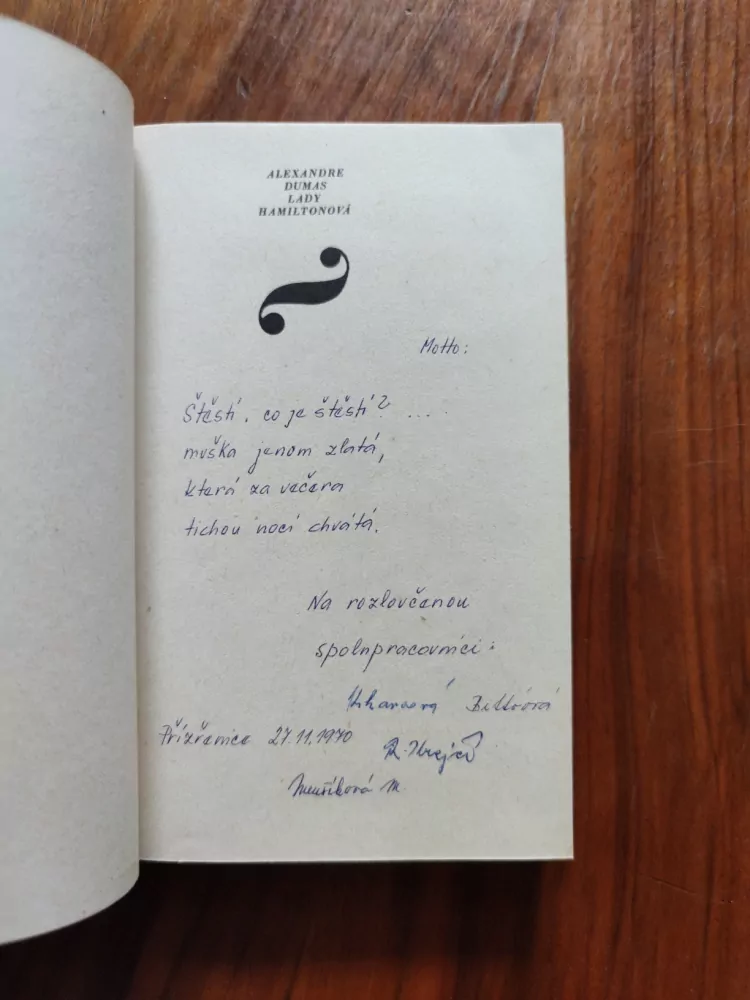 ALEXANDRE
DUMAS
LADY
HAMILTONOVÁ
Motto:
Štěstí, co je štěstí? ...
muška jenom zlatá,
která za večera
tichou nocí chvátá.
Na rozloučenou
spolupracovníci:
Přízřenice 27.11.1970